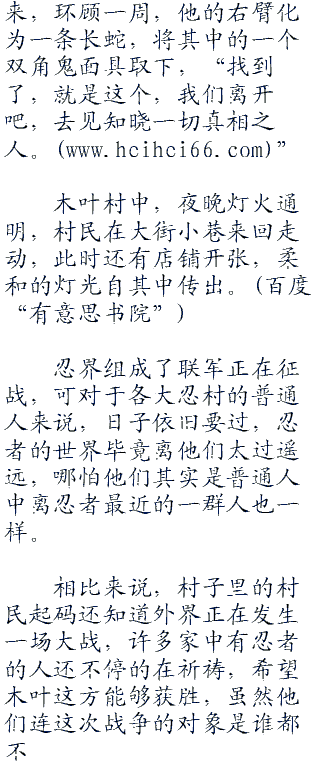 来，环顾一周，他的右臂化
为一条长蛇，将其中的一个
双角鬼面具取下，“找到
了，就是这个，我们离开
吧，去见知晓一切真相之
人。(www.hcihci66.com)”
木叶村中，夜晚灯火通
明，村民在大街小巷来回走
动，此时还有店铺开张，柔
和的灯光自其中传出。(百度
“有意思书院”)
忍界组成了联军正在征
战，可对于各大忍村的普通
人来说，日子依旧要过，忍
者的世界毕竟离他们太过遥
远，哪怕他们其实是普通人
中离忍者最近的一群人也一
样。
相比来说，村子里的村
民起码还知道外界正在发生
一场大战，许多家中有忍者
的人还不停的在祈祷，希望
木叶这方能够获胜，虽然他
们连这次战争的对象是谁都
不